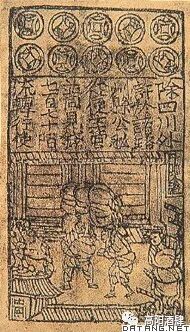 除四川外
許於諸路
州縣公私
從便主管
並同見錢
七百七十陌
流轉行使
DATANG.NET